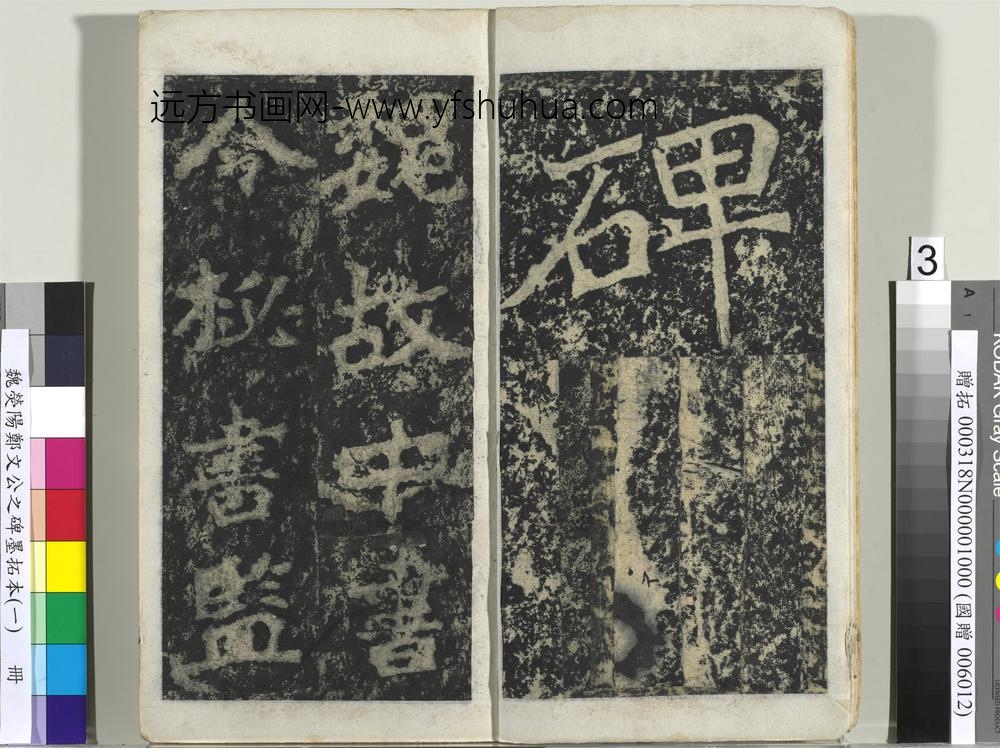 远方书画网-www.yfshuhua.com
碑
魏故中書
令秘書監
魏滎陽鄭文公之碑墨拓本(一) 冊
3
A 1
KODAK Gray Scale
贈拓 000318N000001000 (國贈 006012)